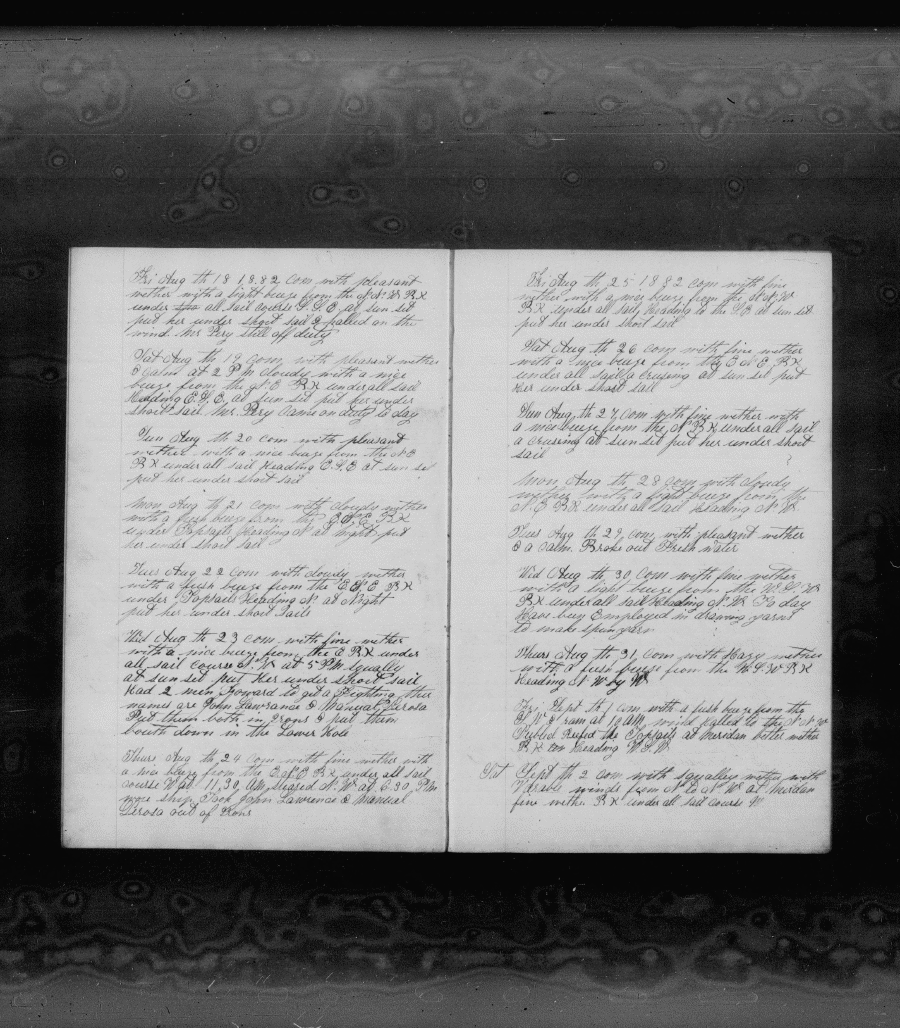 Fri Aug th 18 1882 Com with pleasant
wether with a light breze from the N N W B X
under all sail course S. S. E at sun set
put her under short sail & palled on the
wind. Mr Pery still off duty
Sat Aug th 19 Com with pleasant wether
& Calm at 2 P M Cloudy with a nice
breze from the N E B X under all sail
Heading E. S. E. at sun set put her under
short sail. Mr. Pery Came on duty to day
Sun Aug th 20 Com with pleasant
wether with a nice breze from the N E
B X under all sail Heading E. S. E at sun set
put her under short sail
Mon Aug th 21 Com with cloudy wether
with a fresh breze from the B X
under Topsails Heading N at Night put
her under short sail
Tues Aug 22 Com with cloudy wether
with a fresh breze from the E S E B X
under Topsails Heading N at Night
put her under short sails
Wed Aug th 23 Com with fine wether
with a nice breze from the E B X under
all sail course N. W at 5 P.M. Squally
at sun set put her under short sail
Had 2 men Foward to get a Fighting their
names are John Lawrance & Manual Derosa
Put them both in Irons & put them
bouth down in the Lower Hole
Thurs Aug th 24 Com with fine wether with
a nice breze from the E B X under all sail
course W at 11,30, AM, Steared N. W at 6.30, P.M.
wore ship. Took John Lawrence & Manual
Derosa out of Irons
Fri Aug th 25 1882 Com with fine
wether with a nice breze from the N N W
B X under all sail Heading to the at sun set
put her under short sail
Sat Aug th 26 Com with fine wether
with a nice breze from the E N E B X
under all sail a crusing at sun set put
her under short sail
Sun Aug, th 27 Com with fine wether with
a nice breze from the N B X under all sail
a crusing at sun set put her under short
sail
Mon Aug th 28 Com with cloudy
wether with a light breze from the
N. E B X under all sail Heading N. W
Tues Aug th 29, Com with pleasant wether
& a Calm. Broke out Fresh water
Wed Aug th 30 Com with fine wether
with a light breze from the W. S. W
B X under all sail Heading N. W. To day
Have buy Employed in drawing yarns
to make spunyarn
Thurs Aug th 31, Com with Hazy wether
with a fresh breze from the W S W B X
Heading N W by W
Fri, Sept th 1 Com with a fresh breze from the
S. W & ram at 10 AM, wind palled to the N N W
Reefed the Topsails at Meridan better wether
B X on Heading W. S. W.
Sat Sept th 2 Com with squalley wether with
winds from N to N W at Meridan
fine wether B X under all sail course W